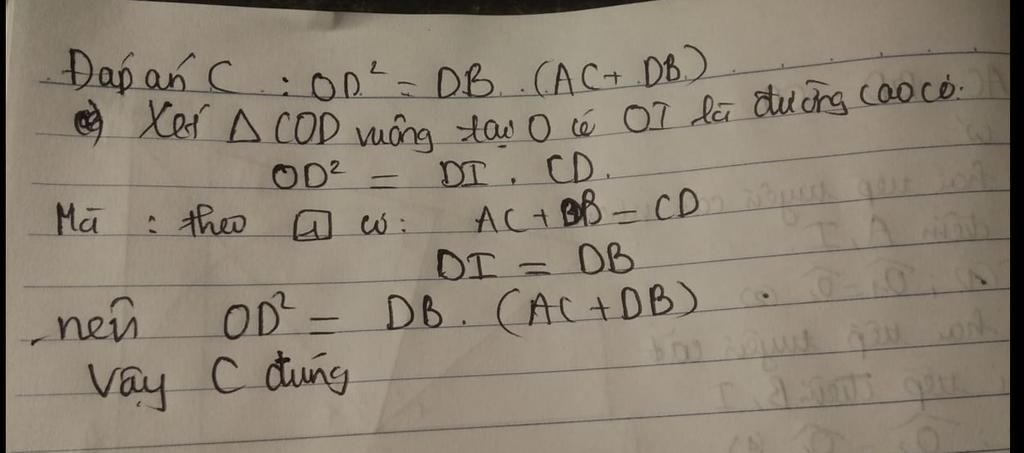 Đáp án C : OD² = DB. (AC + DB)
c) Xét Δ COD vuông tại O có OI là đường cao có:
OD² = DI . CD.
Mà : theo a có: AC + DB = CD
DI = DB
nên OD² = DB. (AC + DB)
Vậy C đúng